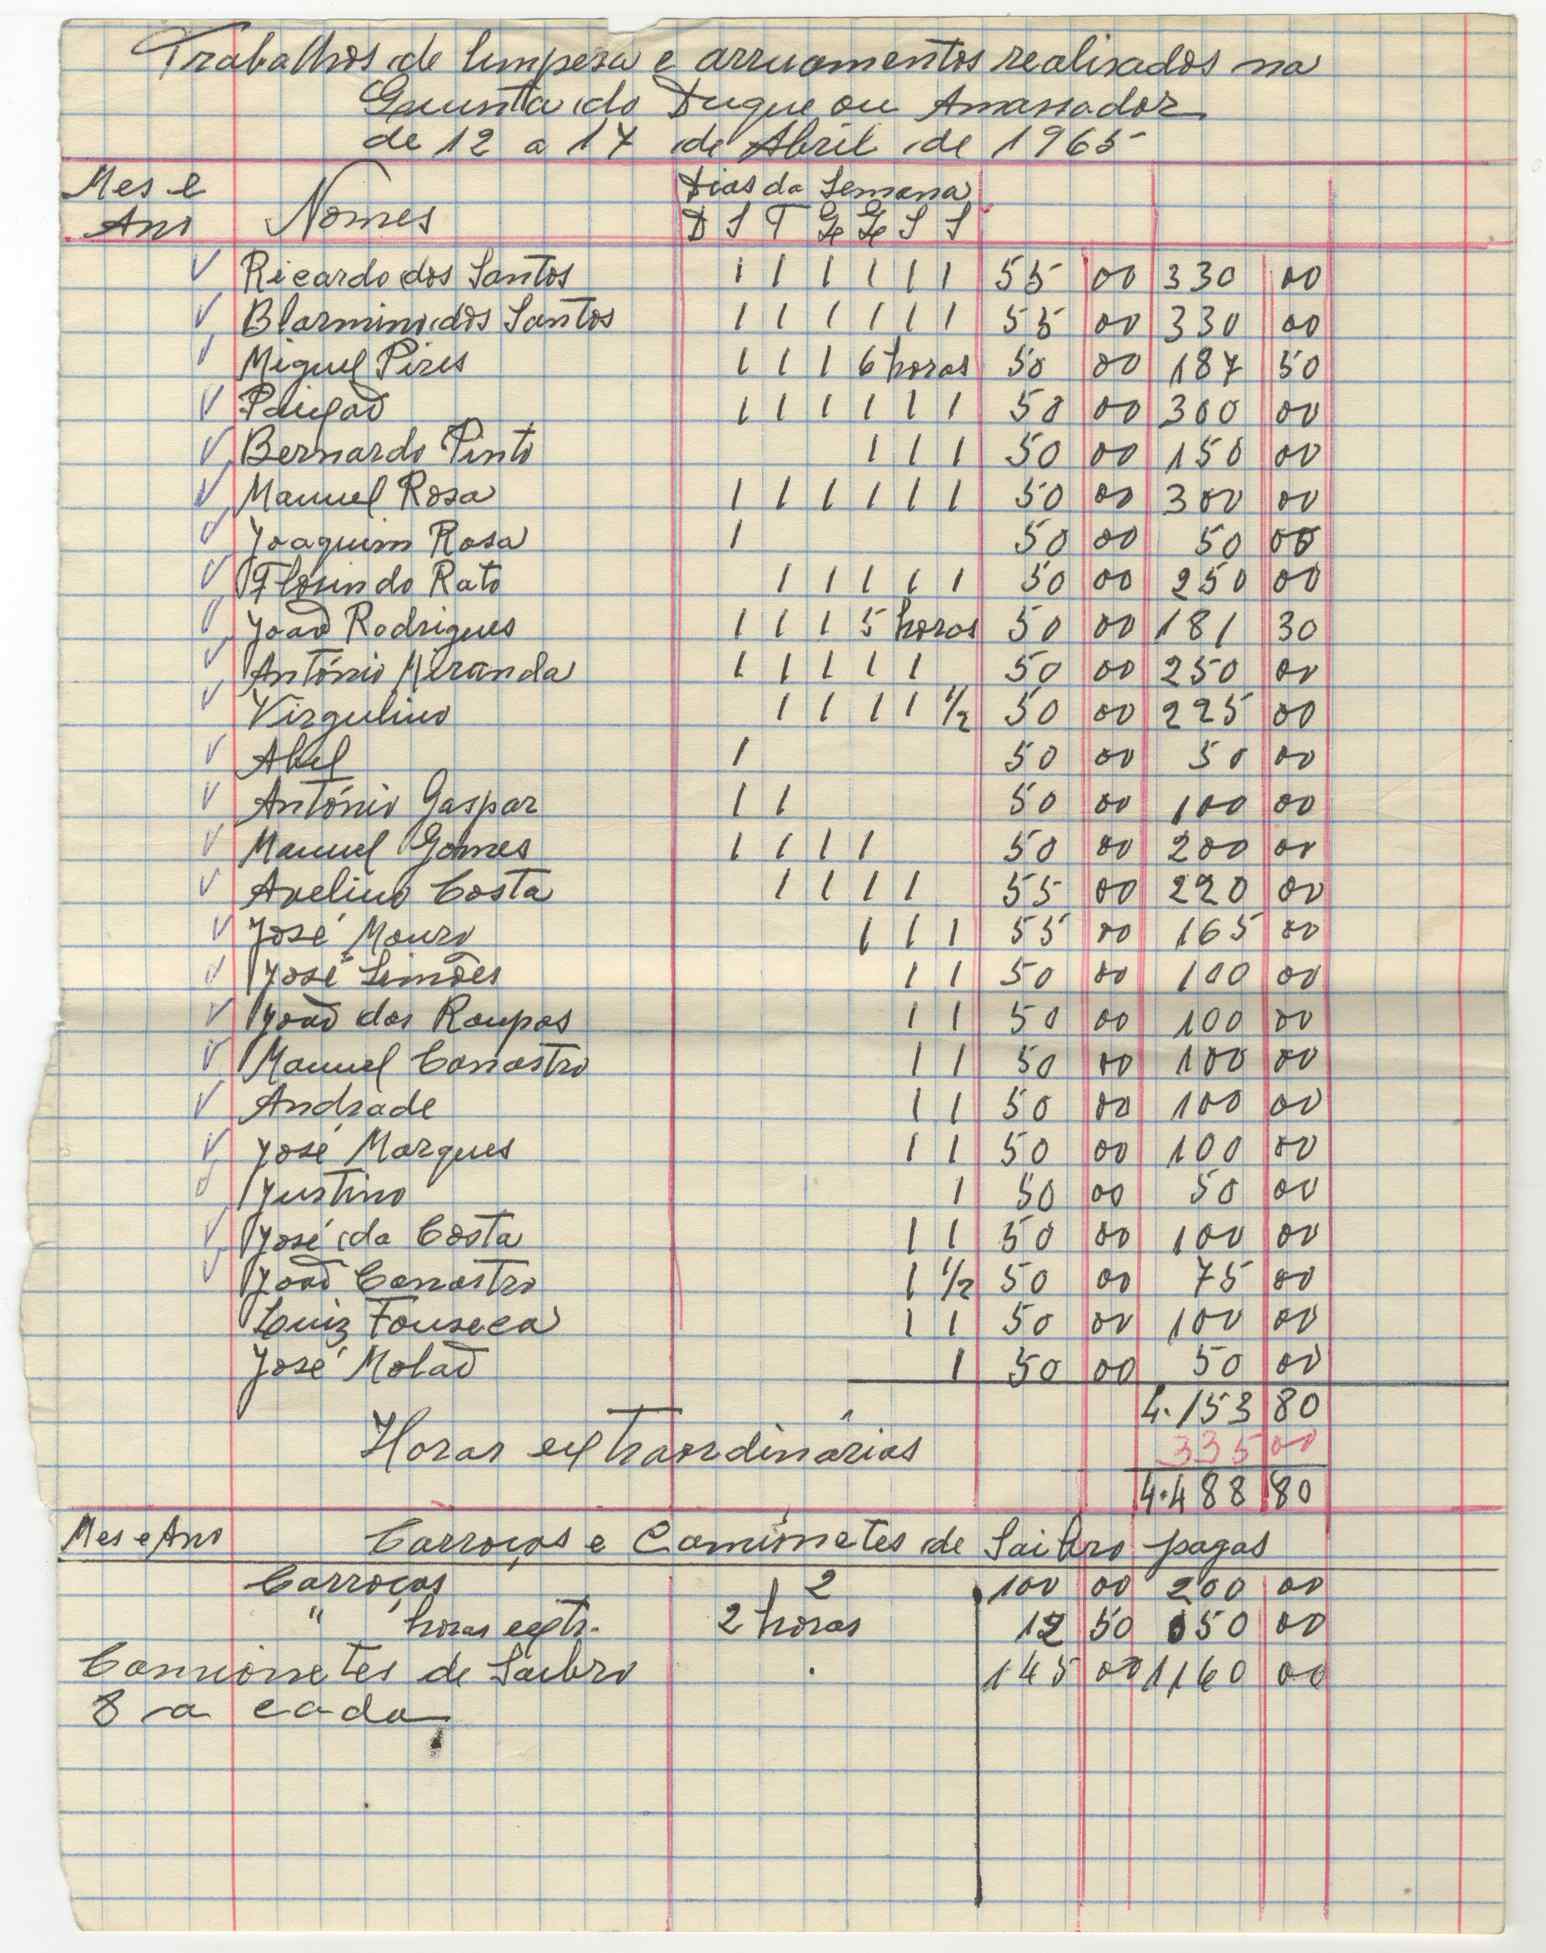 Trabalhos de limpesa e arruamentos realisados na
Quinta do Duque ou Amassador
de 12 a 17 de Abril de 1965
Mes e Ano Nomes Dias da Semana
D S T Q Q S S
✓ Ricardo dos Santos 1 1 1 1 1 1 55 00 330 00
✓ Blarmino dos Santos 1 1 1 1 1 1 55 00 330 00
✓ Miguel Pires 1 1 1 6 horas 50 00 187 50
✓ 1 1 1 1 1 1 50 00 300 00
✓ Bernardo Pinto 1 1 1 50 00 150 00
✓ Manuel Rosa 1 1 1 1 1 1 50 00 300 00
✓ Joaquim Rosa 1 50 00 50 00
✓ Florindo Rato 1 1 1 1 1 50 00 250 00
✓ João Rodrigues 1 1 1 5 horas 50 00 181 30
✓ António Miranda 1 1 1 1 1 50 00 250 00
✓ Virgulino 1 1 1 1 1/2 50 00 225 00
✓ Abel 1 50 00 50 00
✓ António Gaspar 1 1 50 00 100 00
✓ Manuel Gomes 1 1 1 1 50 00 200 00
✓ Avelino Costa 1 1 1 1 55 00 220 00
✓ José Mouro 1 1 1 55 00 165 00
✓ José Simões 1 1 50 00 100 00
✓ João das Roupas 1 1 50 00 100 00
✓ Manuel Canastro 1 1 50 00 100 00
✓ Andrade 1 1 50 00 100 00
✓ José Marques 1 1 50 00 100 00
✓ Justino 1 50 00 50 00
✓ José da Costa 1 1 50 00 100 00
✓ João Canastro 1 1/2 50 00 75 00
Luiz Fonseca 1 1 50 00 100 00
José Molaõ 1 50 00 50 00
4.153 80
Horas extraordinárias 335 00
4.488 80
Mes e Ano Carroças e Camionetes de Saibro pagas
Carroças 2 100 00 200 00
" horas extr. 2 horas 12 50 050 00
Camionetes de Saibro 145 00 1160 00
8 a cada